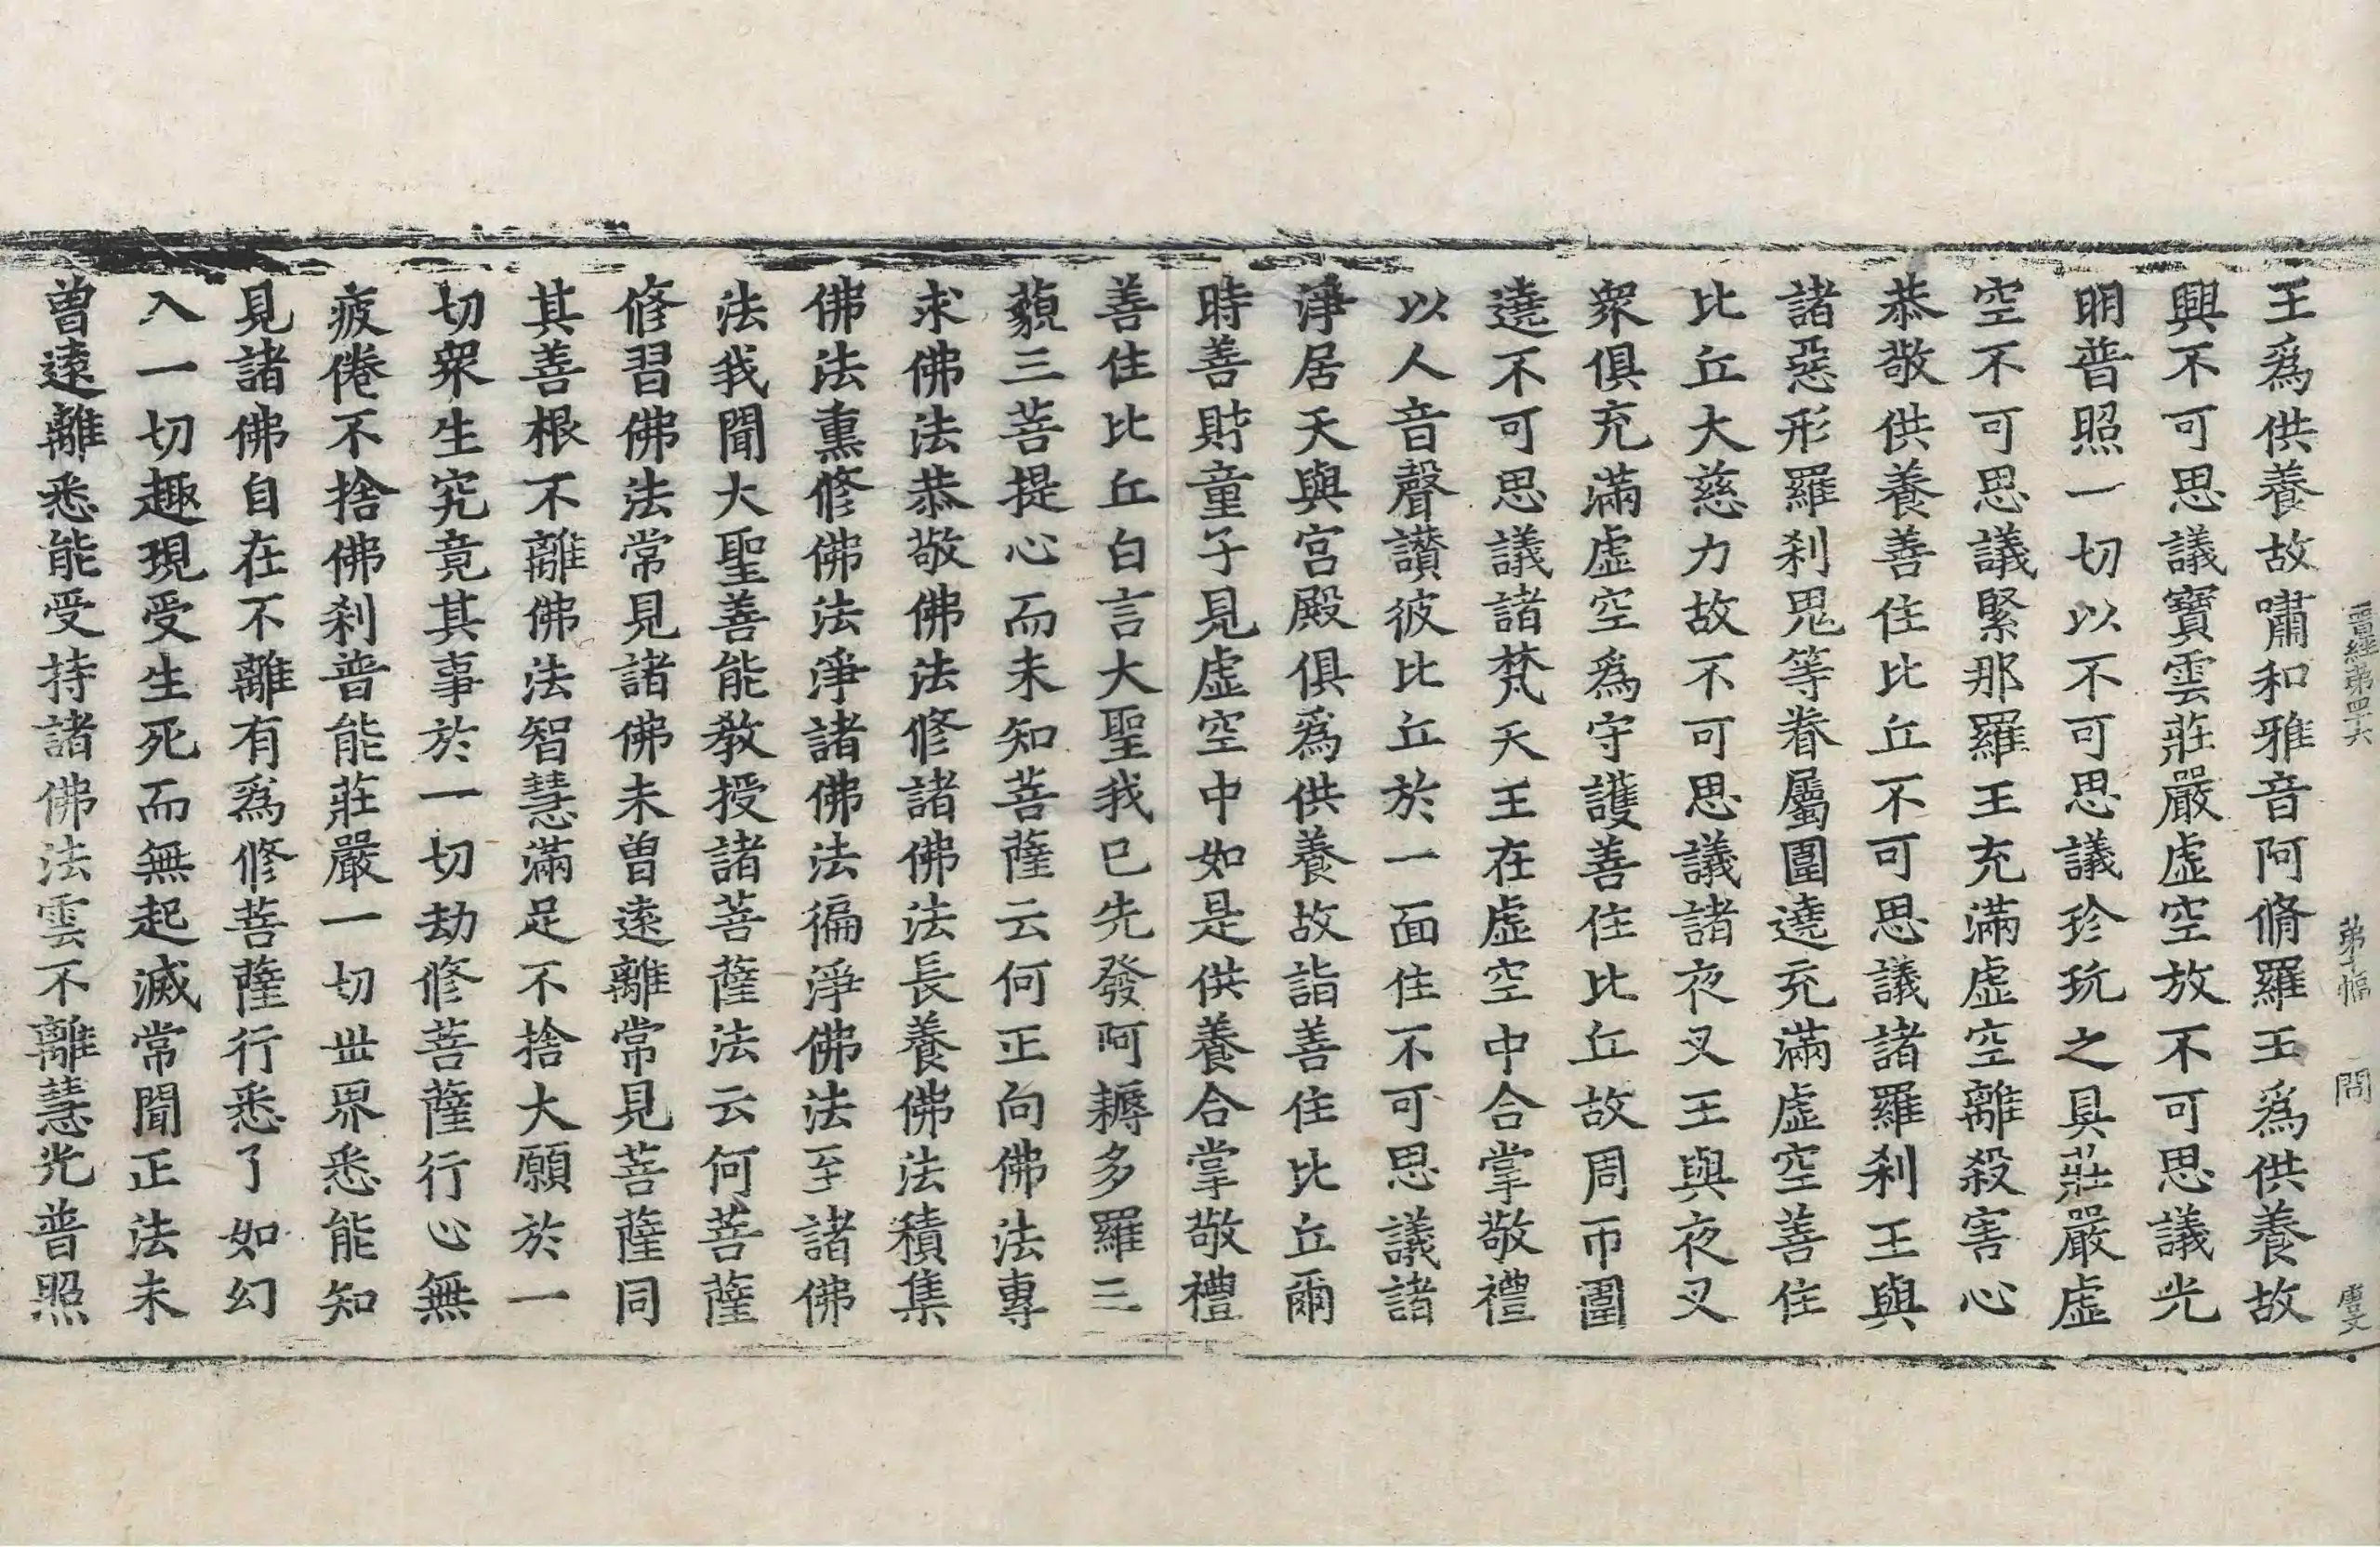 晉經第四十六 第十幅 問 唐文
王爲供養故嘯和雅音阿脩羅王爲供養故
興不可思議寶雲莊嚴虛空放不可思議光
明普照一切以不可思議珍玩之具莊嚴虛
空不可思議緊那羅王充滿虛空離殺害心
恭敬供養善住比丘不可思議諸羅刹王與
諸惡形羅刹鬼等眷屬圍遶充滿虛空善住
比丘大慈力故不可思議諸夜叉王與夜叉
衆俱充滿虛空爲守護善住比丘故周帀圍
遶不可思議諸梵天王在虛空中合掌敬禮
以人音聲讃彼比丘於一面住不可思議諸
淨居天與宮殿俱爲供養故詣善住比丘爾
時善財童子見虛空中如是供養合掌敬禮
善住比丘白言大聖我已先發阿耨多羅三
藐三菩提心而未知菩薩云何正向佛法專
求佛法恭敬佛法修諸佛法長養佛法積集
佛法熏修佛法淨諸佛法徧淨佛法至諸佛
法我聞大聖善能教授諸菩薩法云何菩薩
修習佛法常見諸佛未曾遠離常見菩薩同
其善根不離佛法智慧滿足不捨大願於一
切衆生究竟其事於一切劫修菩薩行心無
疲倦不捨佛刹普能莊嚴一切世界悉能知
見諸佛自在不離有爲修菩薩行悉了如幻
入一切趣現受生死而無起滅常聞正法未
曾遠離悉能受持諸佛法雲不離慧光普照